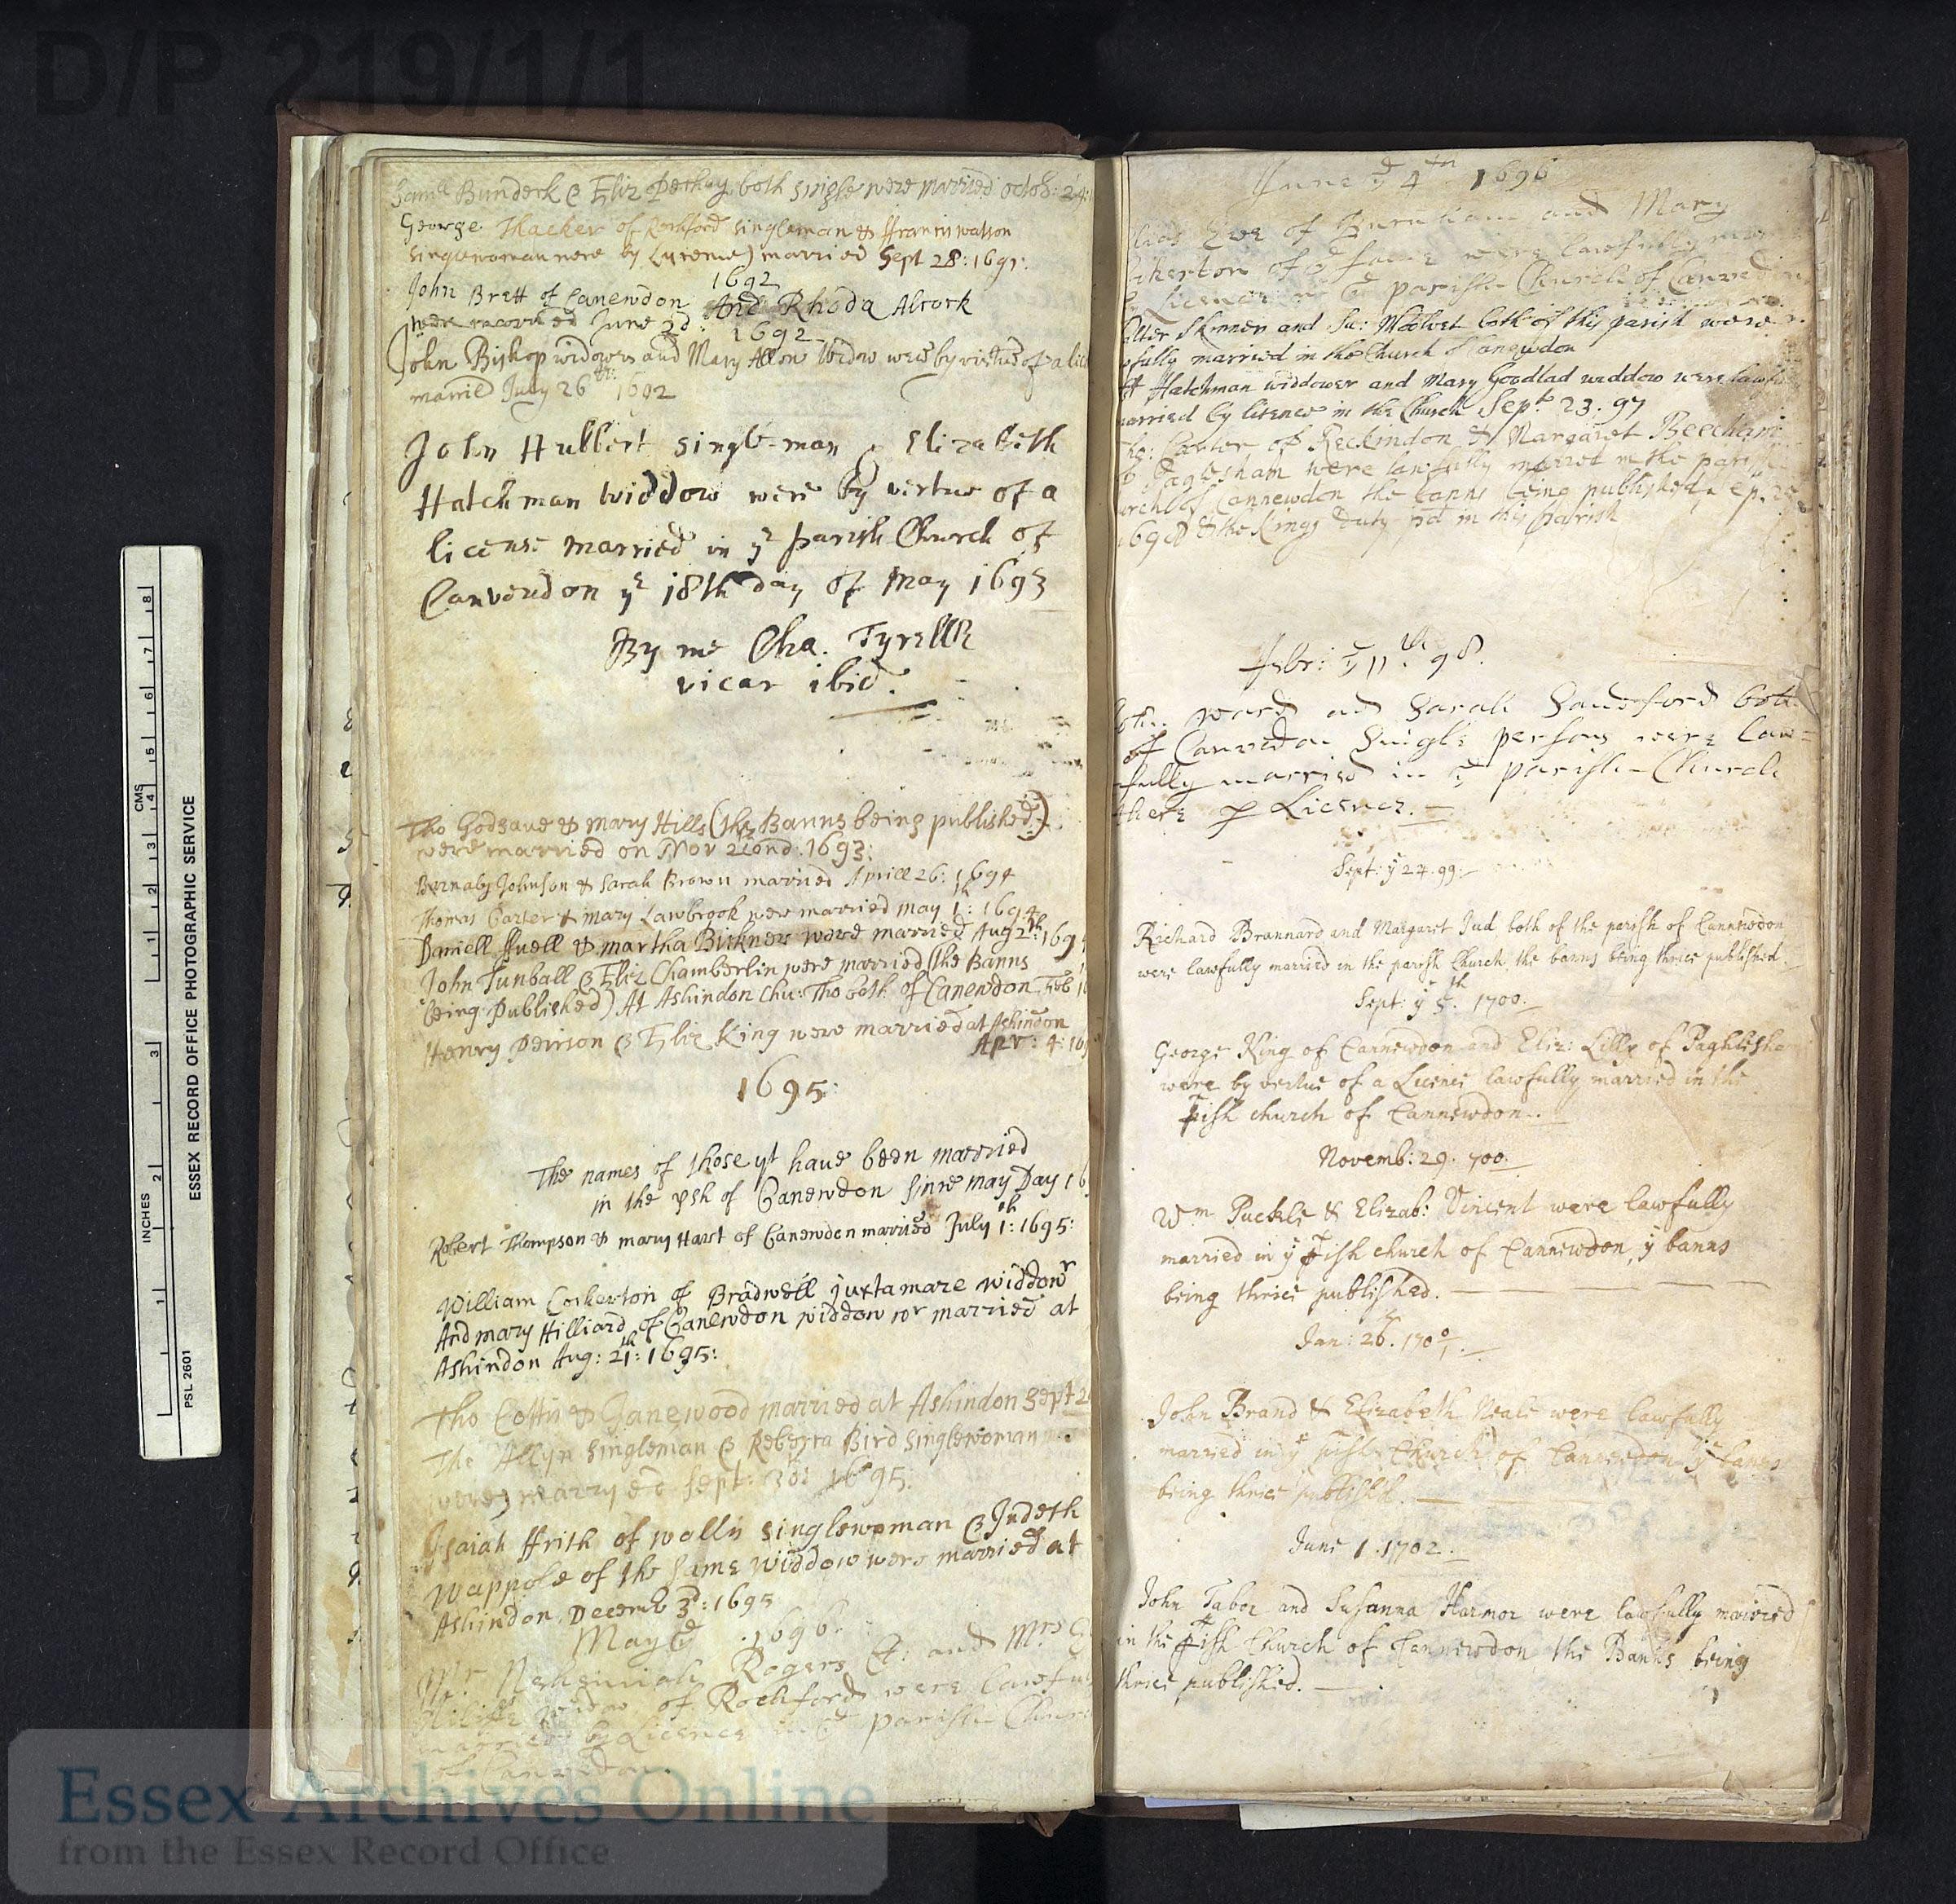 D/P 219/1/1
Samll Bundock & Eliz Peckey both single were married octob: 24:
George Thacker of Rochford singleman & ffrancis watson
singlewoman were by (Lycence) married Sept 28: 1691:
1692
John Brett of Canewdon And Rhoda Alcock
were married June 2d: 1692
John Bishop widower and Mary Allen Widow were by virtue of a lic
married July 26th: 1692
John Hulbert single-man & Elizabeth
Hatchman widdow were by vertue of a
license married in ye parish Church of
Canvendon ye 18th day of May 1693
By me Cha. Tyrell
vicar ibid.
Tho Godsave & mary Hills (the Banns being published)
were married on Nov 2cond: 1693:
Barnaby Johnson & Sarah Brown married Aprill 26: 1694
Thomas Carter & mary Lawbrook were married may 1: 1694
Daniell ffuell & martha Bickner were married Aug 2th: 169
John Tunball & Eliz Chamberlin were married (the Banns
being Published) At Ashindon Chu: Tho both of Canewdon Feb 1
Henry Perrion & Eliz King were married at Ashindon
Apr: 4: 169
1695:
The names of those yt have been married
in the psh of Canewdon since may Day 16
Robert Thompson & mary Hart of Canewden married July 1th: 1695:
William Cockerton of Bradwell juxta mare widdowr
And mary Hilliard of Canewdon widdow wr married at
Ashindon Aug: 21th: 1695:
Tho Cottis & Jane wood married at Ashindon Sept 2
Tho Allyn singleman & Rebecca Bird singlewoman
were marryed Sept: 30: 1695:
Isaiah ffrith of wallis singlewoman & Judeth
Wappole of the same widdow were married at
Ashindon Decemb 3d: 1695
May ye 1696.
Mr Nehemiah Rogers and Mrs
widow of Rochford were lawful
married by Licence in ye parish Churc
of Canvedon.
June ye 4th 1696
Eve of Burnham and Mary
of ye same were lawfully
Licence in ye parish Church of Canvedon
Skinner and Su: Woolvet both of this parish were
fully married in the Church of Canewdon
Hatchman widdower and Mary Goodlad widdow were lawfu
married by licence in the Church Sept. 23. 97
Tho: Carter of Reckindon & Margaret Beecham
of Paglesham were lawfully married in the parish
urch of Cannewdon the banns being published Sep. 2
1698 & the Kings Duty pd in this parish
Febr: ye 11th. 98.
John ward and Sarah Sandford both
of Canvedon Single persons were law=
fully married in ye parish Church
there p Licence.
Sept: ye 24. 99:
Richard Brannard and Margaret Jud both of the parish of Cannewdon
were lawfully married in the parish Church the banns being thrice published.
Sept: ye 5th. 1700.
George King of Cannewdon and Eliz: Lilly of Paghlesha
were by vertue of a Licence lawfully married in the
pish church of Cannewdon.
Novemb: 29. 700.
Wm Puckle & Elizab: Vincent were lawfully
married in ye pish church of Cannewdon, ye banns
being thrice published.
Jan: 26. 1700/1.
John Brand & Elizabeth Neale were lawfully
married in ye pish Church of Cannewdon ye banns
being thrice publish'd.
June 1. 1702.
John Tabor and Susanna Harmor were lawfully maried
in the pish Church of Cannewdon the Banns being
thrice published.
INCHES 1 2 3
CMS 1 2 3 4 5 6 7 8
ESSEX RECORD OFFICE PHOTOGRAPHIC SERVICE
PSL 2601
Essex Archives Online
from the Essex Record Office